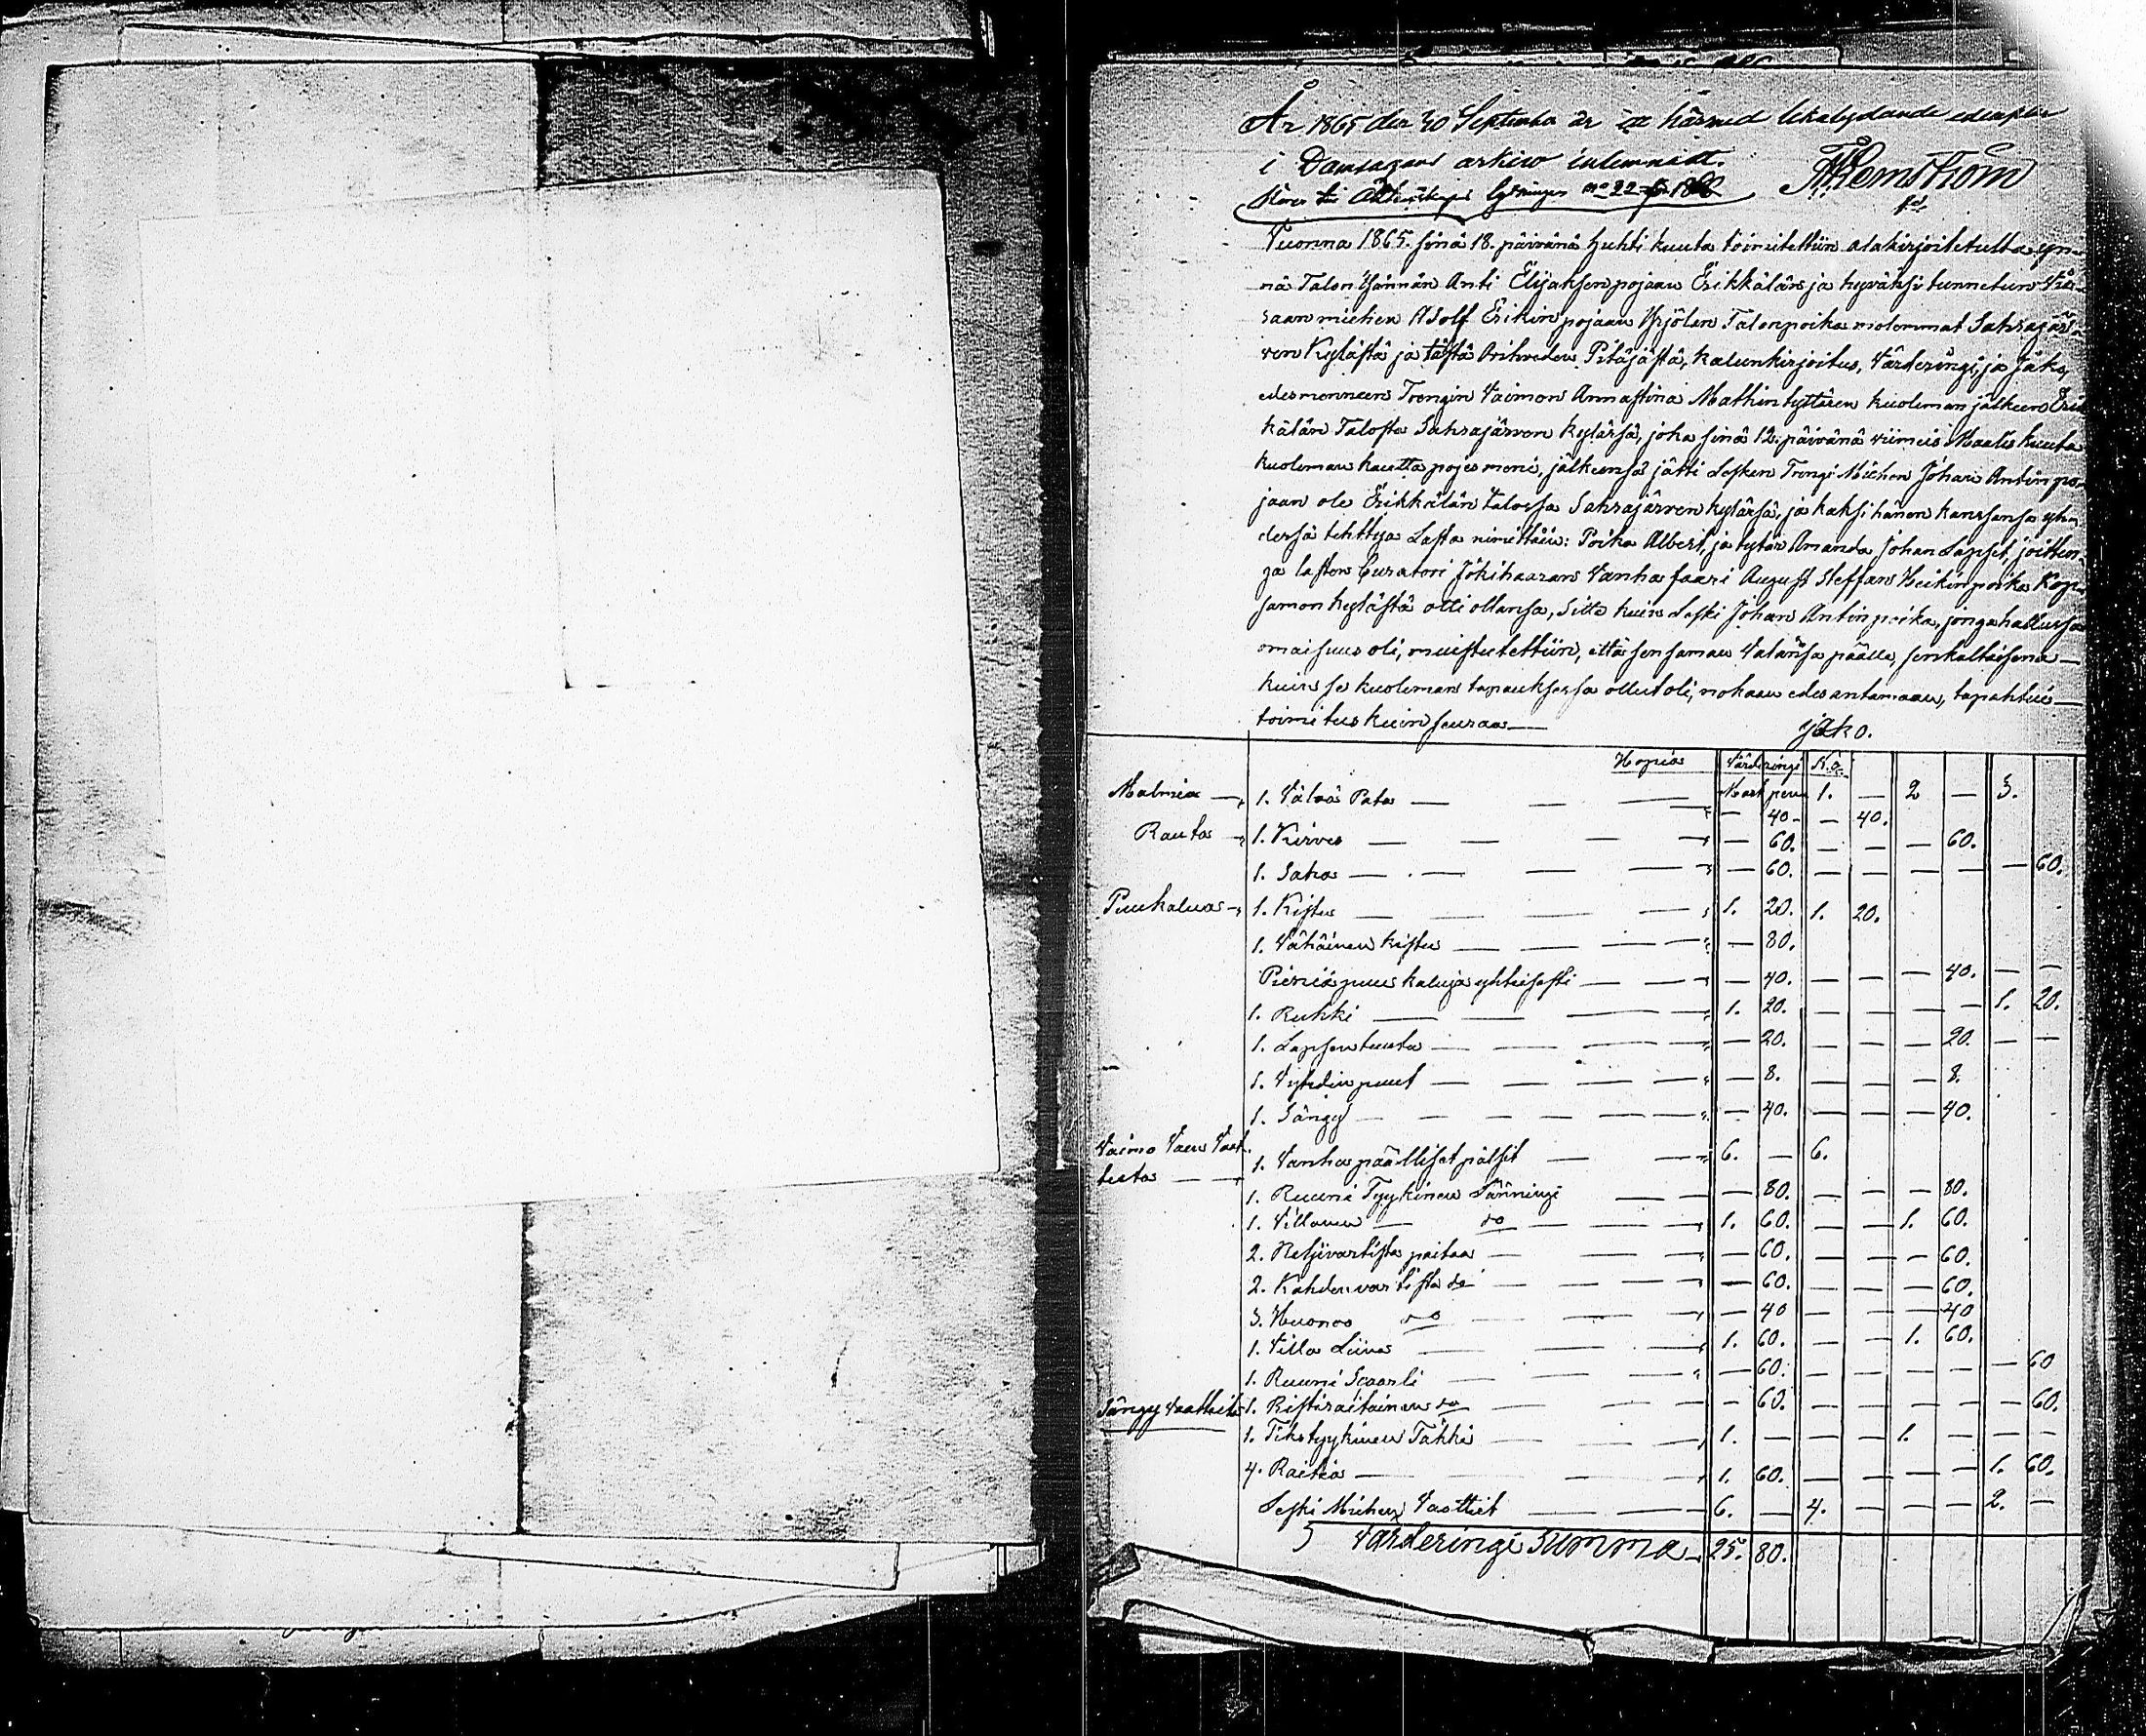 År 1865 den 30 September är ett härmed likalydande exemplar
i Domsagans arkiv inlemnadt.
No 22 1862
Vuonna 1865. sinä 18. päivänä huhti kuuta toimitettiin alakirjoitetulta yn-
nä Talon Isännän Anti Elijaksen pojaan Erikkälän ja hyväksi tunnetun Wie-
raan miehen Adolf Erikin pojaan Yrjölen Talonpoika molommat Sahrajär-
ven Kylästä ja tästä Orihveden Pitäjästä, kalunkirjoitus, Värderingi, ja Jako,
edesmenneen Trengin Vaimon Annastina Mathin tyttären kuoleman jälkeen Erik
kälän Talosta Sahrajärven kylässä, joka sinä 12. päivänä viimeis Maalis kuuta
kuoleman kautta pojes meni, jälkeensä jätti Lesken Trengi Miehen Johan Antin po-
jaan ole Erikkälän talossa Sahrajärven kylässä, ja kaksi hänen kanssansa yh-
dessä tehttyä Lasta nimittäin: Poika Albert, ja tytär Amanda Johan Lapset, joitten-
ga lasten Curatori Jokihaaran Vanha faari August Steffan Heikin poika Kop-
samon kylästä olli ollansa, Sitte kuin Leski Johan Antin poika, jonga hallussa
omaisuus oli, muistutettiin, että sen saman Valansa päälle, senkaltaisena —
kuin se kuoleman tapauksessa ollut oli, nokaan edesantamaan, tapahtui —
toimitus kuin seuraa —
jako.
Hopias Värderingi N.o
Malmia — 1. Valos Pata — Mark pen 1. — 2 — 3.
— 40 — — 40.
Rautas — 1. Kirves — — 60. — — — 60.
1. Sahas — — 60. — — — — — 60.
Puukaluas — 1. Kistu — 1. 20. 1. 20.
1. Vähäinen kistu — — 80.
Pieniä puu kaluja yhteisesti — — 40. — — — 40. — —
1. Rukki — 1. 20. — — — — 1. 20.
1. Lapsen tuuta — — 20. — — — 20. — —
1. Vyhdin puut — — 8. — — — 8.
1. Sängy — — 40. — — — 40.
Vaimo Väen Vaat-
teita — 1. Vanha päälliset pälsit — 6. — 6.
1. Ruuni Tyykinen Länningi — — 80. — — — 80.
1. Villanen do — 1. 60. — — 1. 60.
2. Neljivartista paitaa — — 60. — — — 60.
2. Kahden vartista do — — 60. — — — 60.
3. Huonoo do — — 40 — — — 40
1. Villa Liina — 1. 60. — — 1. 60.
1. Ruuni Scaarli — — 60. — — — — — 60
Sängy vaatteita 1. Ristiraitainen do — — 60. — — — — — 60.
1. Tikstyykinen Täkki — 1. — — — 1. — — —
4. Raitia — 1. 60. — — — — 1. 60.
Leski Miehen Vaatteet — 6. — 4. — — — 2. —
Värderingi Summa — 25. 80.